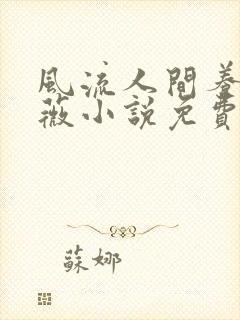 風流人間養
薇小說免費
蘇娜